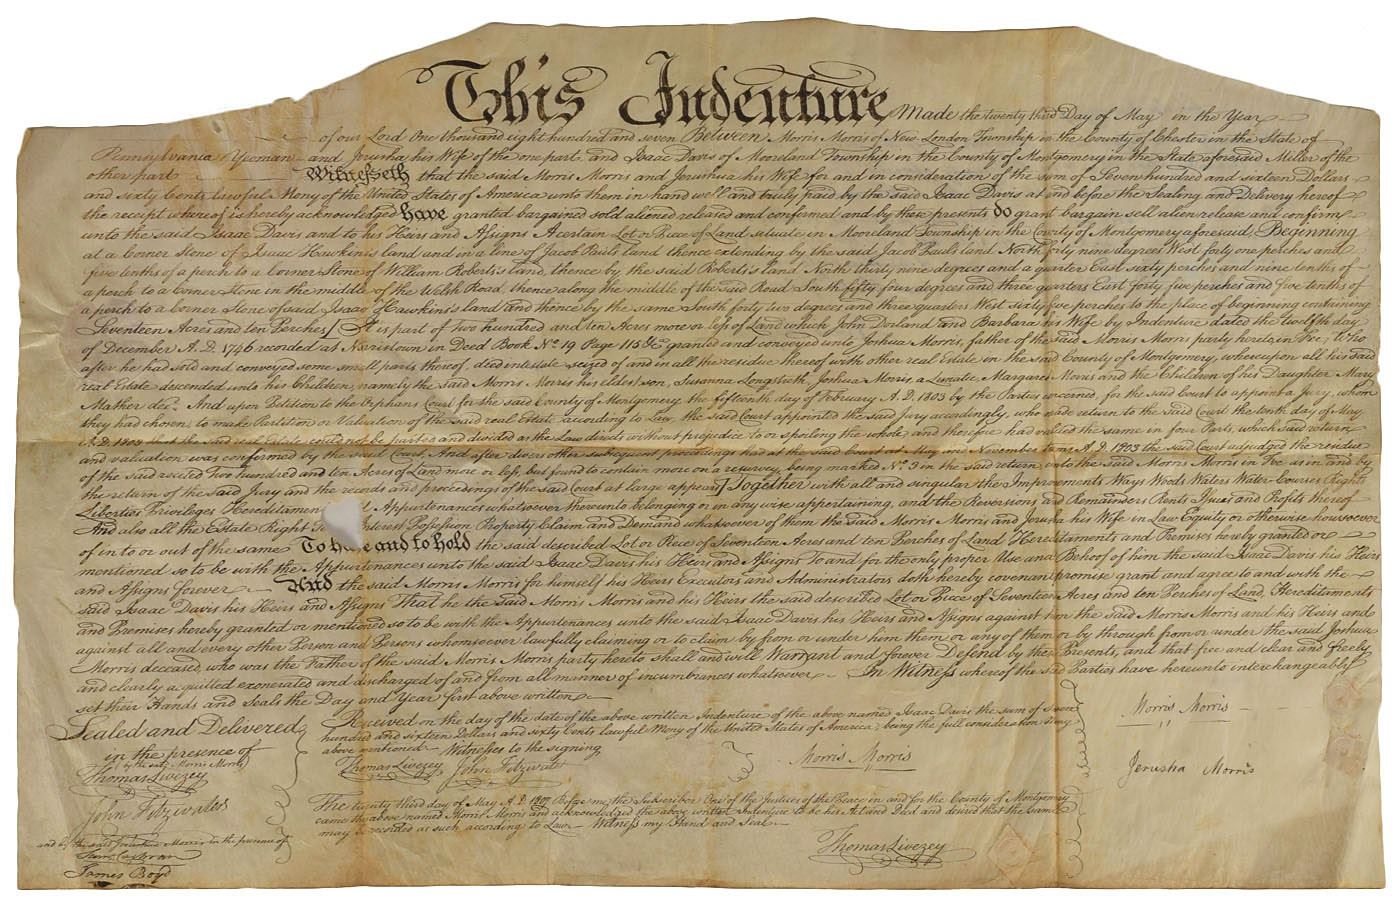 This Indenture Made the twenty third Day of May in the Year
of our Lord One thousand eight hundred and seven Between Morris Morris of New-London Township in the County of Chester in the State of
Pennsylvania Yeoman and Jerusha his Wife of the one part and Isaac Davis of Mooreland Township in the County of Montgomery in the State aforesaid Miller of the
other part Witnesseth that the said Morris Morris and Jerushua his Wife for and in consideration of the sum of Seven hundred and sixteen Dollars
and sixty Cents lawful Mony of the United States of America unto them in hand well and truly paid by the said Isaac Davis at and before the Sealing and Delivery hereof
the receipt whereof is hereby acknowledged have granted bargained sold aliened released and confirmed and by these presents do grant bargain sell alien release and confirm
unto the said Isaac Davis and to his Heirs and Assigns A certain Lot or Piece of Land situate in Mooreland Township in the County of Montgomery aforesaid Beginning
at a corner Stone of Isaac Hawkins's land and in a line of Jacob Paul's land thence extending by the said Jacob Paul's land North forty nine degrees West forty one perches and
five tenths of a perch to a Corner Stone of William Roberts's land, thence by the said Roberts's land North thirty nine degrees and a quarter East sixty perches and nine tenths of
a perch to a corner Stone in the middle of the Welsh Road, thence along the middle of the said Road South fifty four degrees and three quarters East forty five perches and five tenths of
a perch to a corner Stone of said Isaac Hawkins's land and thence by the same South forty two degrees and three quarters West sixty five perches to the place of beginning containing
Seventeen Acres and ten Perches [It is part of Two hundred and ten Acres more or less of Land which John Dorland and Barbara his Wife by Indenture dated the twelfth day
of December A.D. 1746 recorded at Norristown in Deed Book No. 19 Page 115 &c. granted and conveyed unto Joshua Morris, father of the said Morris Morris party hereto, in Fee, Who
after he had sold and conveyed some small parts thereof, died intestate seized of and in all the residue thereof with other real Estate in the said County of Montgomery, whereupon all his said
real Estate descended unto his Children, namely the said Morris Morris his eldest son, Susanna Longstreth, Joshua Morris, a Lunatic, Margaret Morris and the Children of his Daughter Mary
Mather decd. And upon Petition to the Orphans Court for the said County of Montgomery the fifteenth day of February A.D. 1803 by the Parties concerned, for the said Court to appoint a jury, whom
they had chosen, to make Partition or Valuation of the said real Estate according to Law, the said Court appointed the said Jury accordingly, who made return to the said Court the tenth day of May
A.D. 1803 that the said real Estate could not be parted and divided as the Law directs without prejudice to or spoiling the whole and therefore had valued the same in four Parts, which said return
and valuation was confirmed by the said Court, And after divers other subsequent proceedings had at the said Court at May and November terms A.D. 1803 the said Court adjudged the residue
of the said recited Two hundred and ten Acres of Land more or less, but found to contain more on a resurvey, being marked No. 3 in the said return unto the said Morris Morris in Fee as in and by
the return of the said Jury and the records and proceedings of the said Court at large appears] Together with all and singular the Improvements Ways Woods Waters Water-Courses Rights
Liberties Privileges Hereditamen Appurtenances whatsoever thereunto belonging or in any wise appertaining, and the Reversions and Remainders Rents Issues and Profits thereof
And also all the Estate Right Interest Possession Property Claim and Demand whatsoever of them the said Morris Morris and Jerusha his Wife in Law Equity or otherwise howsoever
of in to or out of the same To have and to hold the said described Lot or Piece of Seventeen Acres and ten Perches of Land Hereditaments and Premises hereby granted or
mentioned so to be with the Appurtenances unto the said Isaac Davis his Heirs and Assigns To and for the only proper Use and Behoof of him the said Isaac Davis his Heirs
and Assigns forever And the said Morris Morris for himself his Heirs Executors and Administrators doth hereby covenant promise grant and agree to and with the
said Isaac Davis his Heirs and Assigns That he the said Morris Morris and his Heirs the said described Lot or Piece of Seventeen Acres and ten Perches of Land Hereditaments
and Premises hereby granted or mentioned so to be with the Appurtenances unto the said Isaac Davis his Heirs and Assigns against him the said Morris Morris and his Heirs and
against all and every other Person and Persons whomsoever lawfully claiming or to claim by from or under him them or any of them or by through from or under the said Joshua
Morris deceased, who was the Father of the said Morris Morris party hereto shall and will Warrant and forever Defend by these Presents, and that free and clear and freely
and clearly acquitted exonerated and discharged of and from all manner of incumbrances whatsoever In Witness whereof the said Parties have hereunto interchangeably
set their Hands and Seals the Day and Year first above written
Sealed and Delivered
in the presence of
by the sd. Morris Morris
Thomas Livezey
John Fitzwater
and by the said Jerusha Morris in the presence of
James Boyd
Received on the day of the date of the above written Indenture of the above named Isaac Davis the sum of Seven
hundred and sixteen Dollars and sixty Cents lawful Mony of the United States of America, being the full consideration Mony
above mentioned Witnesses to the signing
Thomas Livezey John Fitzwater
Morris Morris
The twenty third day of May A.D. 1807 Before me the Subscriber One of the Justices of the Peace in and for the County of Montgomery
came the above named Morris Morris and acknowledged the above written Indenture to be his Act and Deed and desired that the same
may be recorded as such according to Law Witness my Hand and Seal
Thomas Livezey
Morris Morris
Jerusha Morris